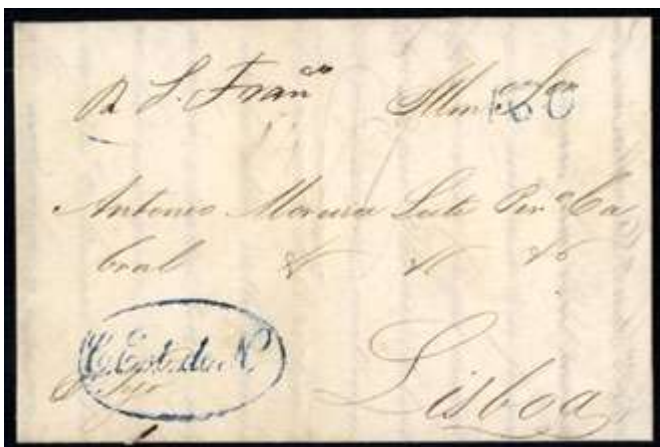 S. Fran^co Illmo. Snr.
160
Antonio Moreira Leite Per^a Ca
bral
C. Est. de N.
Lisboa